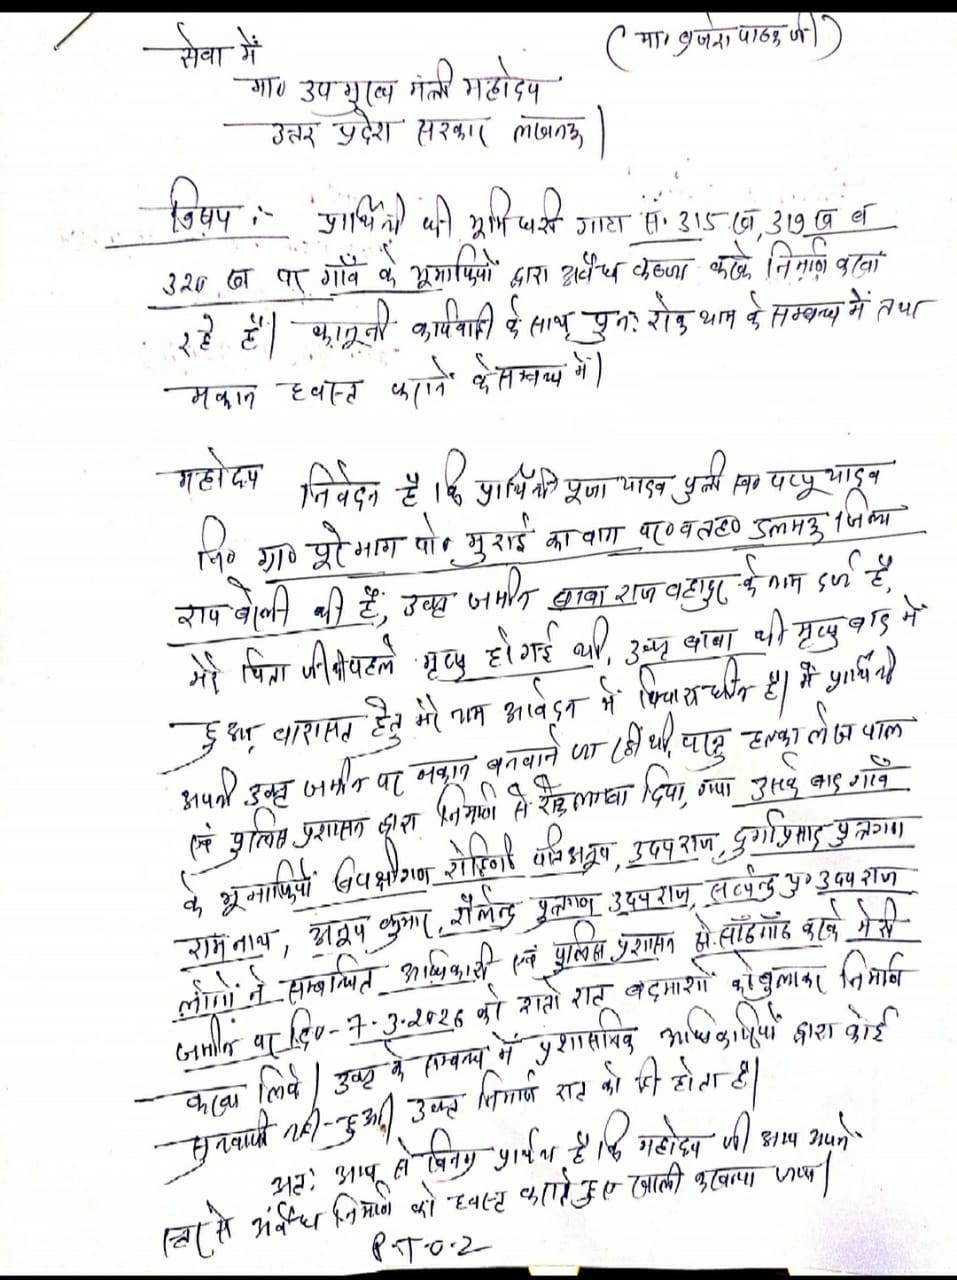 (मा० ब्रजेश पाठक जी)
सेवा में
मा० उप मुख्य मंत्री महोदय
उत्तर प्रदेश सरकार लखनऊ।
विषय :- प्रार्थिनी की भूमिधरी गाटा सं. 315 ख, 319 ख व
320 ख पर गाँव के भूमाफियों द्वारा अवैध कब्जा करके निर्माण करवा
रहे हैं। कानूनी कार्यवाही के साथ पुनः रोक थाम के सम्बन्ध में तथा
मकान ध्वस्त कराने के सम्बन्ध में।
महोदय निवेदन है कि प्रार्थिनी पूजा यादव पुत्री स्व० पप्पू यादव
नि० ग्रा० पूरे भाग पो० मुराई का बाग पर० व तह० डलमऊ जिला
राय बरेली की है, उक्त जमीन बाबा राज बहादुर के नाम दर्ज है,
मेरे पिता जी की पहले मृत्यु हो गई थी, उक्त बाबा की मृत्यु बाद में
हुआ, वारासत हेतु मेरे नाम आवेदन में विचाराधीन है। मैं प्रार्थिनी
अपनी उक्त जमीन पर मकान बनवाने जा रही थी, परन्तु हल्का लेखपाल
एवं पुलिस प्रशासन द्वारा निर्माण से रोक लगवा दिया, गया उसके बाद गाँव
के भूमाफियों विपक्षीगण रोहिणी पत्नि अनूप, उदयराज, दुर्गाप्रसाद पुत्रगण
रामनाथ, अनूप कुमार, शैलेन्द्र पुत्रगण उदयराज, सत्येन्द्र पु० उदयराज
लोगों ने सम्बन्धित अधिकारी एवं पुलिस प्रशासन से साँठगाँठ करके मेरी
जमीन पर दि०-7.3.2026 को रातो रात बदमाशों को बुलाकर निर्माण
करवा लिये। उक्त के सम्बन्ध में प्रशासनिक अधिकारियों द्वारा कोई
सुनवायी नही-हुआ उक्त निर्माण रात को ही होता है।
अतः आप से विनम्र प्रार्थना है कि महोदय जी आप अपने
स्तर से अवैध निर्माण को ध्वस्त कराते हुए खाली करवाया जाय।
P.T.O.2